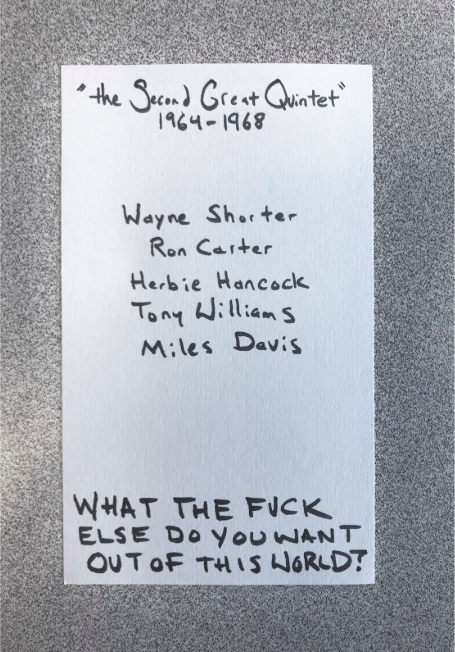 "the Second Great Quintet"
1964-1968
Wayne Shorter
Ron Carter
Herbie Hancock
Tony Williams
Miles Davis
WHAT THE FUCK
ELSE DO YOU WANT
OUT OF THIS WORLD?